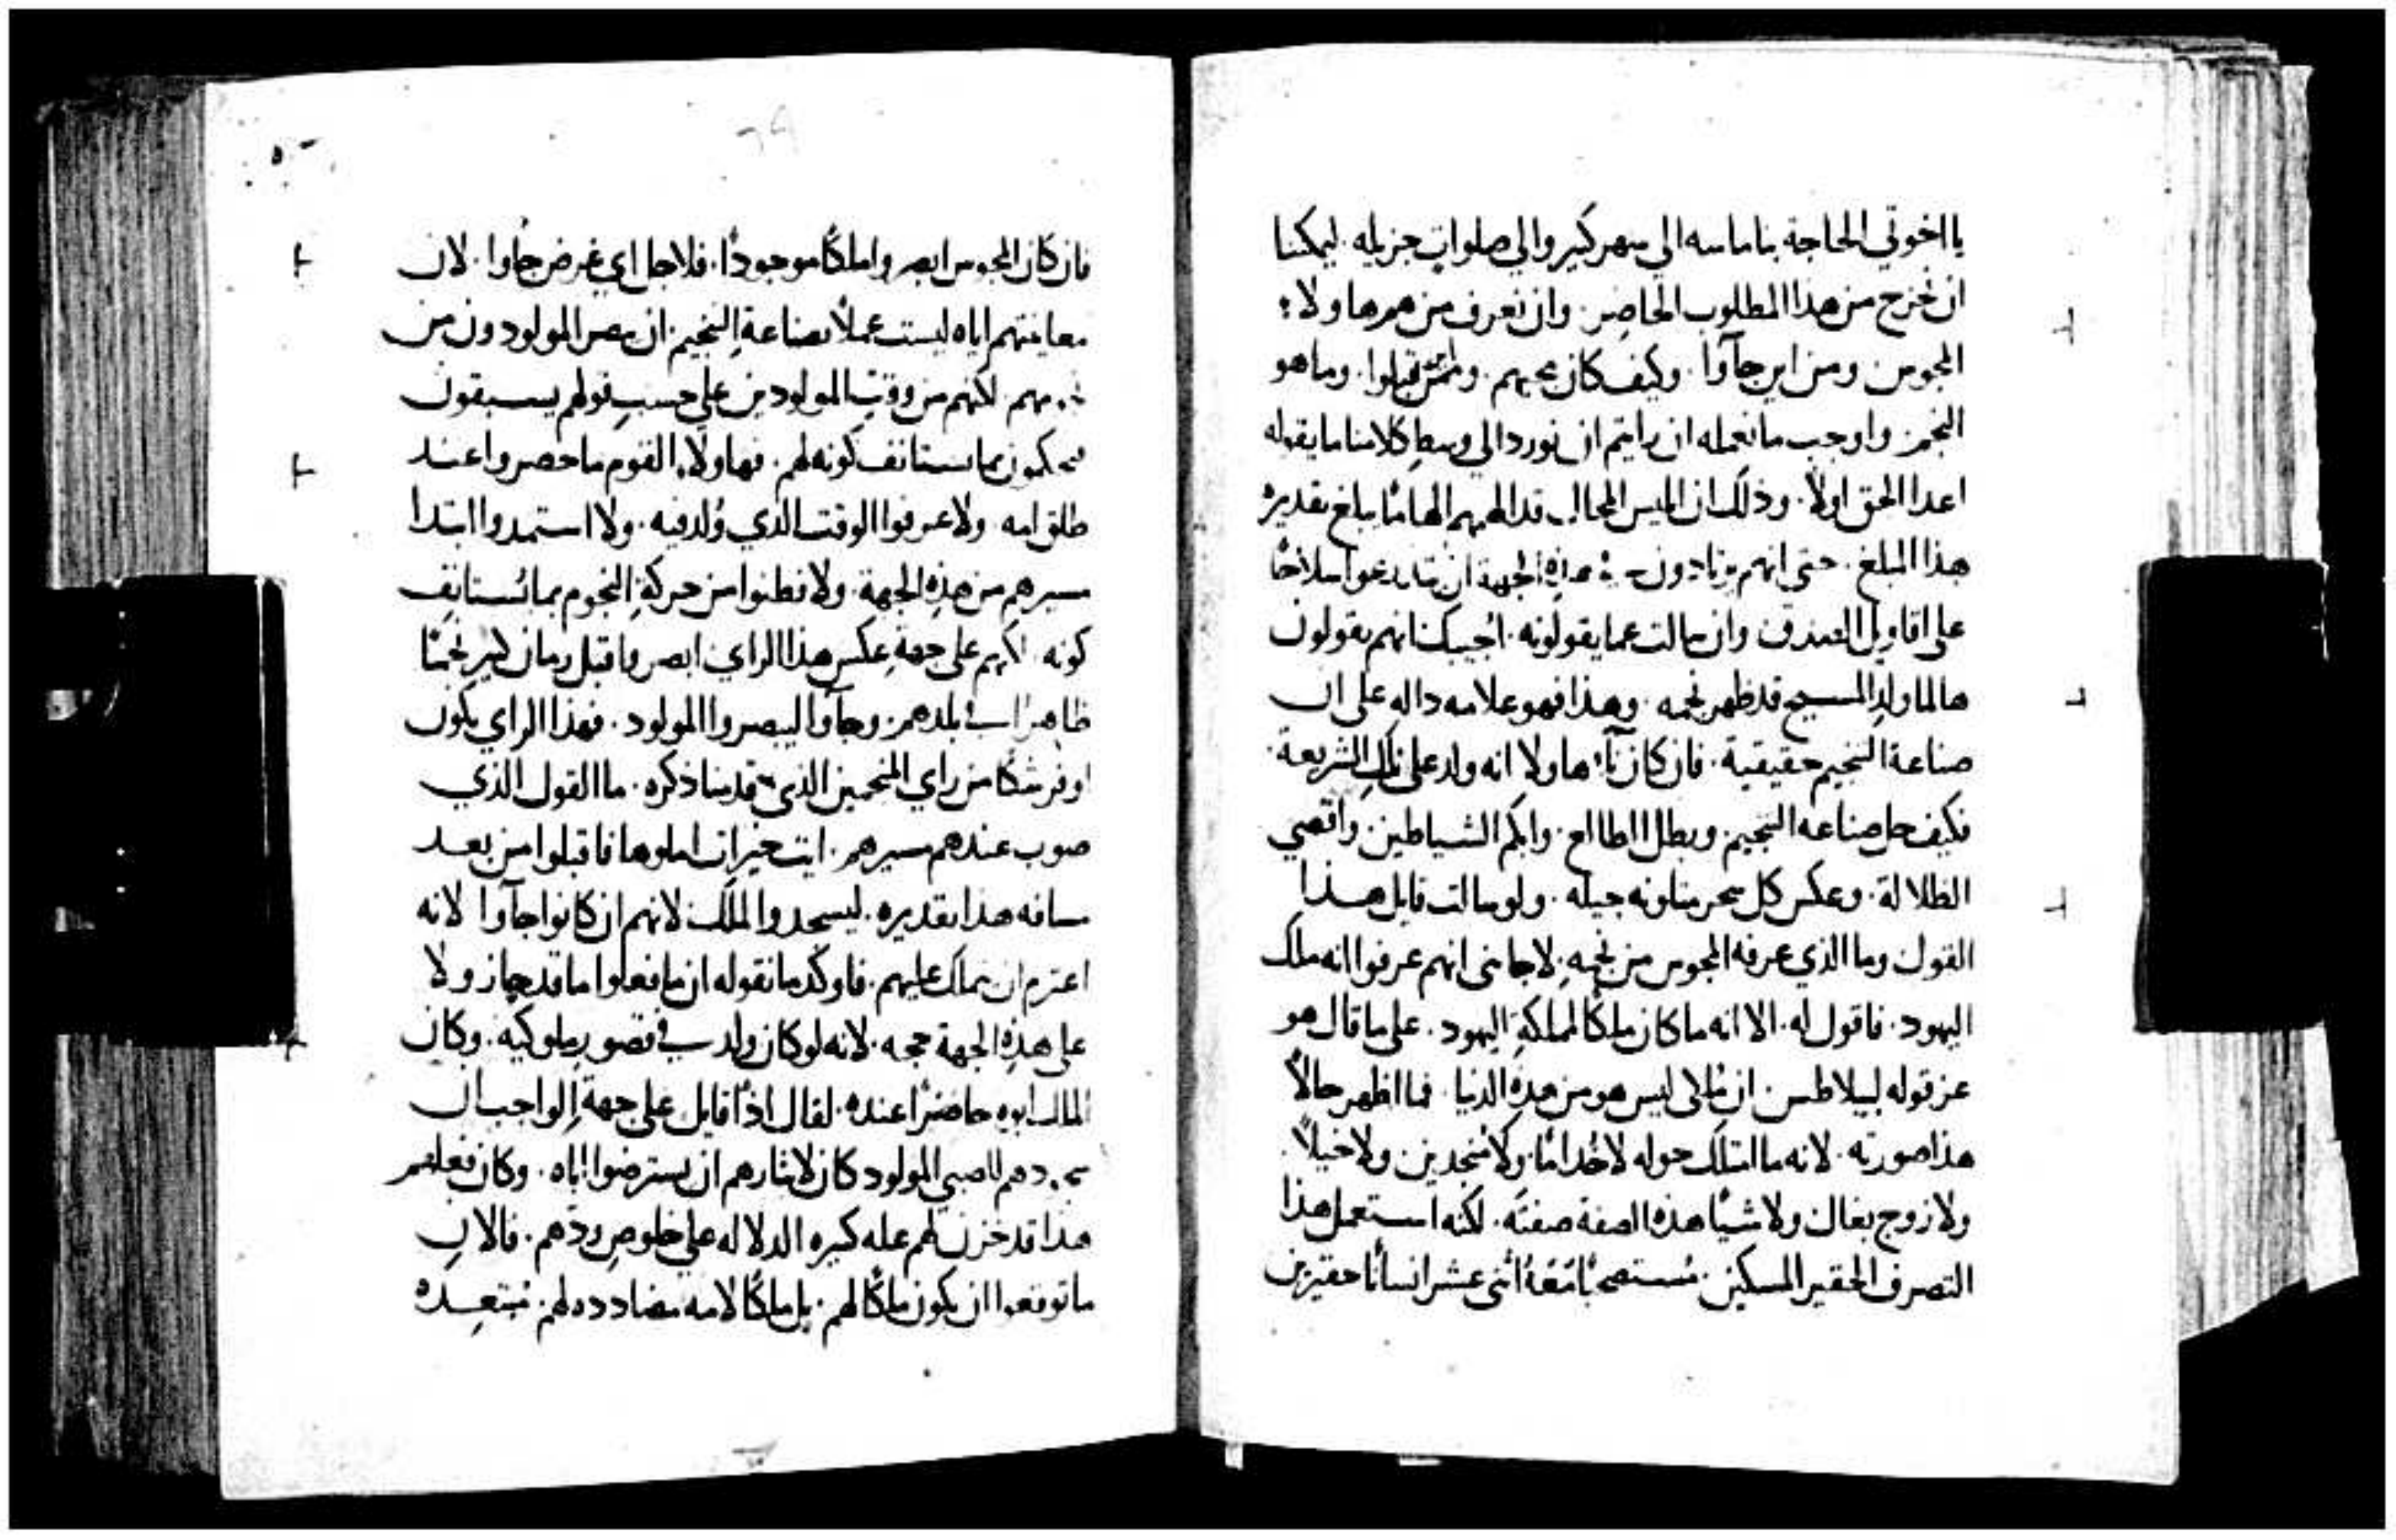 يا اخوتي الحاجة بنا ماسه الي سهر كبير والي صلوات جزيله. ليمكنا
ان نخرج من هذا المطلوب الحاضر. وان نعرف من هم هاولاء
المجوس ومن اين جاَوا. وكيف كان مجيهم. وممن قبلوا. وما هو
النجم. واوجب ما نعمله ان رايتم ان نورد الي وسط كلامنا ما يقوله
اعدا الحق اولاً. وذلك ان ابليس المحال قد الهمهم الهامًا يبلغ تقديره
هذا المبلغ. حتي انهم يرتادون من هذه الجهة ان يتدرعوا سلاحًا
علي اقاويل الصدق وان سالت عما يقولونه. اجيبك انهم يقولون
ها لما ولد المسيح قد ظهر نجمه. وهذا فهو علامه داله علي ان
صناعة التنجيم حقيقية. فان كان هاولا انه ولد علي تلك الشريعة.
فكيف حل صناعه التنجيم وبطل الطالع. وابكم الشياطين واقصي
الظلالة. وعكس كل سحر يتلونه جيله. ولو سالت قايل هذا
القول وما الذي عرفه المجوس من نجمه. لاجابني انهم عرفوا انه ملك
اليهود. فاقول له. الا انه ما كان ملكًا لمملكة اليهود. علي ما قال هو
عن قوله لبيلاطس. ان ملكي ليس هو من هذه الدنيا. فما اظهر حالاً
هذا صورته. لانه ما امتلك حوله لا خدامًا. ولا منجدين ولا خيلاً.
ولا زوج بغال ولا شيًا هذه الصفة صفته. لكنه استعمل هذا
التصرف الحقير المسكين. مستصحبًا معه اثني عشر انسانًا حقيرين
فان كان المجوس ابصروا ملكًا موجودًا. فلاجل اي غرض جاَوا. لان
معاينتهم اياه ليست عملاً لصناعة التنجيم. ان المولودون من
نجومهم. لكنهم من وقت المولودين علي حسب قولهم يسبقون
فيحكمون بما يستانف كونه لهم. فهاولاء القوم ما حضروا عند
طلق امه. ولا عرفوا الوقت الذي وُلد فيه. ولا استمدوا ابتدا
سيرهم من هذه الجهة. ولا فطنوا من حركة النجوم بما يستانف
كونه. لكنهم علي جهة عكس هذا الراي ابصروا قبل زمان كبير نجمًا
ظاهرًا في بلدهم. وجاَوا ليبصروا المولود. فهذا الراي يكون
اوفر شكًا من راي المنجمين الذي قدمنا ذكره. ما القول الذي
صوب عندهم مسيرهم. ايت خيرات املوها فاقبلوا من بعد
مسافه هذا تقديره. ليسجدوا للملك لانهم ان كانوا جاَوا لانه
اعتزم ان يملك عليهم. فاوكد ما نقوله ان ما فعلوا ما قد جاز ولا
علي هذه الجهة حجه. لانه لو كان ولد في قصور ملوكيه. وكان
الملك ابوه حاضرًا عنده. لقال اذًا قايل علي جهة الواجب ان
سجودهم للصبي المولود كان لايثارهم ان يسترضوا اباه. وكان فعلهم
هذا قد خزن لهم عله كبيره الدلاله علي خلوص ودهم. فالان
ما توقعوا ان يكون ملكًا لهم. بل ملكًا لامه مضادده لهم. مبتعده